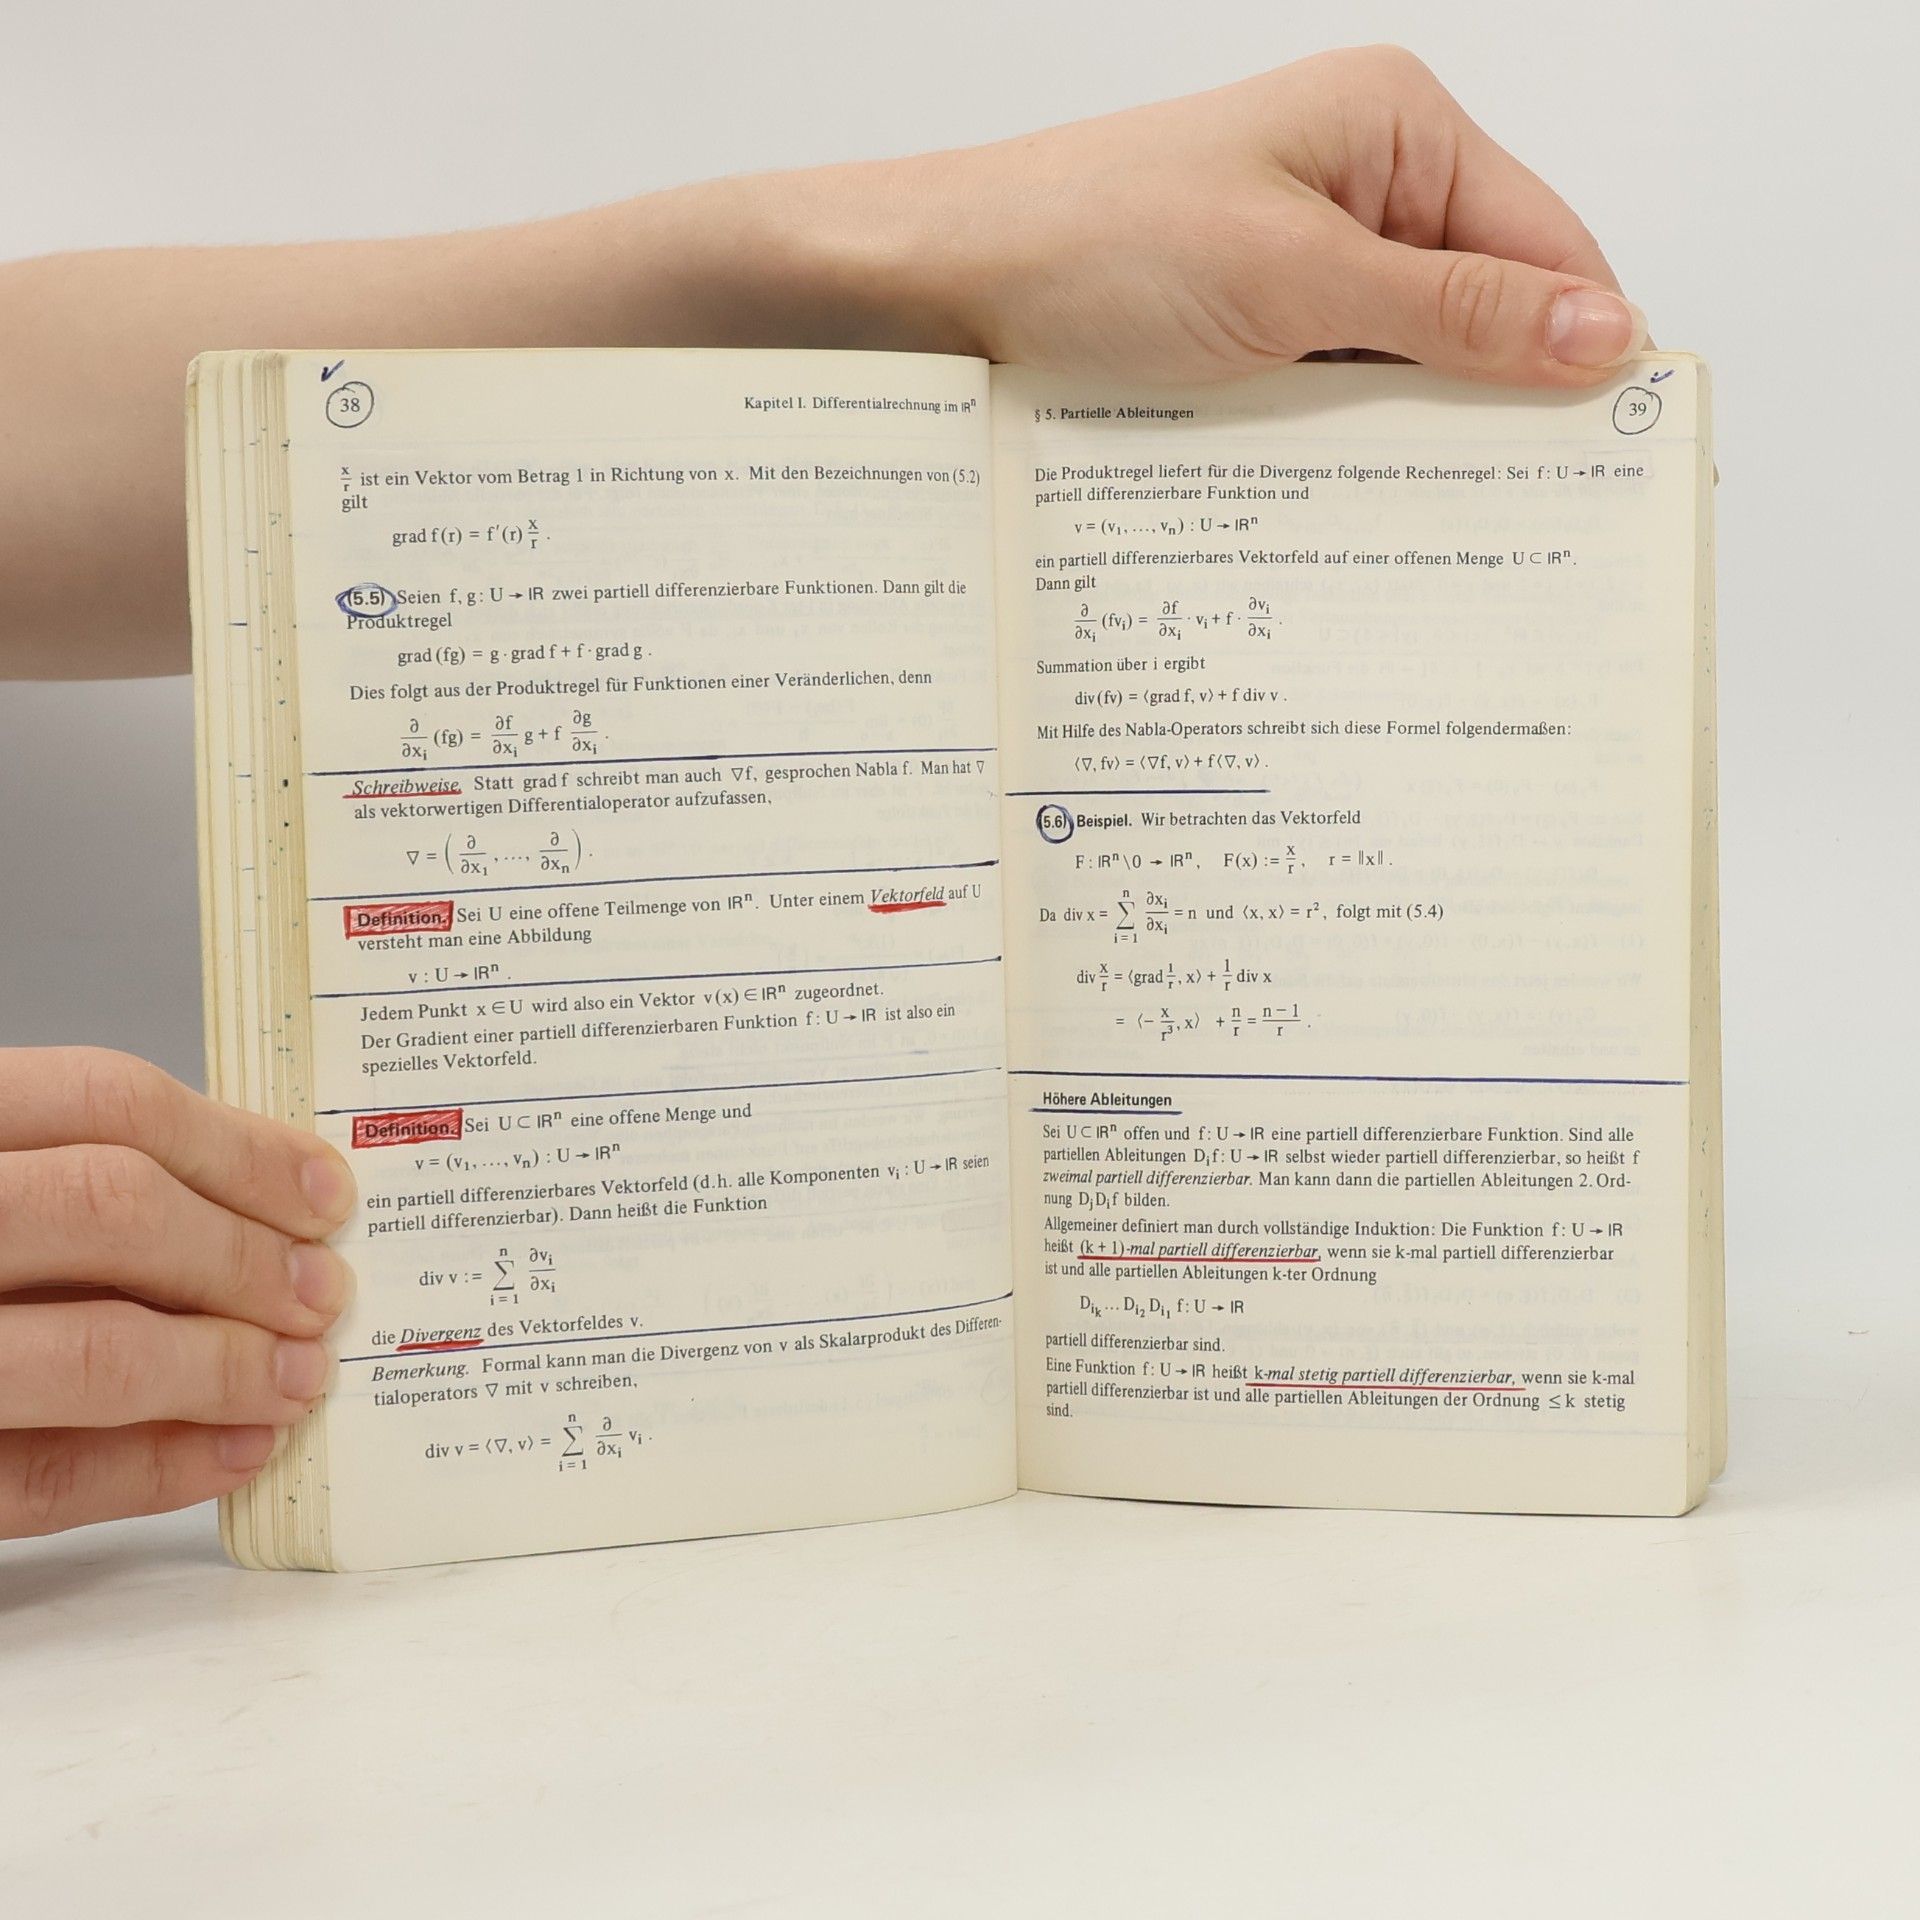 38
Kapitel I. Differentialrechnung im ℝⁿ
x/r ist ein Vektor vom Betrag 1 in Richtung von x. Mit den Bezeichnungen von (5.2)
gilt
grad f(r) = f′(r) x/r .
(5.5) Seien f, g: U → ℝ zwei partiell differenzierbare Funktionen. Dann gilt die
Produktregel
grad (fg) = g · grad f + f · grad g .
Dies folgt aus der Produktregel für Funktionen einer Veränderlichen, denn
∂/∂xᵢ (fg) = ∂f/∂xᵢ g + f ∂g/∂xᵢ .
Schreibweise. Statt grad f schreibt man auch ∇f, gesprochen Nabla f. Man hat ∇
als vektorwertigen Differentialoperator aufzufassen,
∇ = (∂/∂x₁ , . . . , ∂/∂xₙ) .
Definition. Sei U eine offene Teilmenge von ℝⁿ. Unter einem Vektorfeld auf U
versteht man eine Abbildung
v : U → ℝⁿ .
Jedem Punkt x ∈ U wird also ein Vektor v(x) ∈ ℝⁿ zugeordnet.
Der Gradient einer partiell differenzierbaren Funktion f: U → ℝ ist also ein
spezielles Vektorfeld.
Definition. Sei U ⊂ ℝⁿ eine offene Menge und
v = (v₁, . . . , vₙ) : U → ℝⁿ
ein partiell differenzierbares Vektorfeld (d.h. alle Komponenten vᵢ : U → ℝ seien
partiell differenzierbar). Dann heißt die Funktion
div v := ∑ᵢ₌₁ⁿ ∂vᵢ/∂xᵢ
die Divergenz des Vektorfeldes v.
Bemerkung. Formal kann man die Divergenz von v als Skalarprodukt des Differen-
tialoperators ∇ mit v schreiben,
div v = ⟨∇, v⟩ = ∑ᵢ₌₁ⁿ ∂/∂xᵢ vᵢ .
§ 5. Partielle Ableitungen
39
Die Produktregel liefert für die Divergenz folgende Rechenregel: Sei f: U → ℝ eine
partiell differenzierbare Funktion und
v = (v₁, . . . , vₙ) : U → ℝⁿ
ein partiell differenzierbares Vektorfeld auf einer offenen Menge U ⊂ ℝⁿ.
Dann gilt
∂/∂xᵢ (fvᵢ) = ∂f/∂xᵢ · vᵢ + f · ∂vᵢ/∂xᵢ .
Summation über i ergibt
div (fv) = ⟨grad f, v⟩ + f div v .
Mit Hilfe des Nabla-Operators schreibt sich diese Formel folgendermaßen:
⟨∇, fv⟩ = ⟨∇f, v⟩ + f⟨∇, v⟩ .
(5.6) Beispiel. Wir betrachten das Vektorfeld
F : ℝⁿ\0 → ℝⁿ, F(x) := x/r , r = ‖x‖ .
Da div x = ∑ᵢ₌₁ⁿ ∂xᵢ/∂xᵢ = n und ⟨x, x⟩ = r², folgt mit (5.4)
div x/r = ⟨grad 1/r, x⟩ + 1/r div x
= ⟨− x/r³, x⟩ + n/r = (n − 1)/r .
Höhere Ableitungen
Sei U ⊂ ℝⁿ offen und f: U → ℝ eine partiell differenzierbare Funktion. Sind alle
partiellen Ableitungen Dᵢf: U → ℝ selbst wieder partiell differenzierbar, so heißt f
zweimal partiell differenzierbar. Man kann dann die partiellen Ableitungen 2. Ord-
nung DⱼDᵢf bilden.
Allgemeiner definiert man durch vollständige Induktion: Die Funktion f: U → ℝ
heißt (k + 1)-mal partiell differenzierbar, wenn sie k-mal partiell differenzierbar
ist und alle partiellen Ableitungen k-ter Ordnung
D_{i_k} . . . D_{i_2} D_{i_1} f: U → ℝ
partiell differenzierbar sind.
Eine Funktion f: U → ℝ heißt k-mal stetig partiell differenzierbar, wenn sie k-mal
partiell differenzierbar ist und alle partiellen Ableitungen der Ordnung ≤ k stetig
sind.